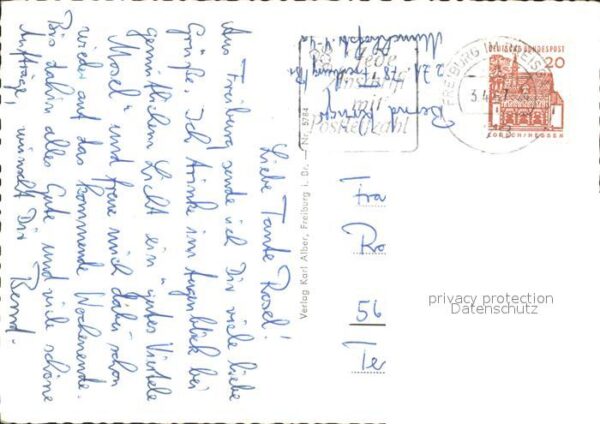 Liebe Tante Rosel!
Aus Freiburg sende ich Dir viele liebe
Grüße. Ich trinke im Augenblick bei
gemütlichem Licht ein "gutes Viertele
Mosel" und freue mich dabei schon
wieder auf das kommende Wochenende.
Bis dahin alles Gute und viele schöne
Aufträge, wünscht Dir
Bernd.
Verlag Karl Alber, Freiburg i. Br. — Nr. 5784
Bernd
z. Zt. 78 Freiburg/Br.
Jede
nur
Postleitzahl
FREIBURG IM BREIS
DEUTSCHE BUNDESPOST
20
LORSCH/HESSEN
Fra
Ro
56
Te
privacy protection
Datenschutz